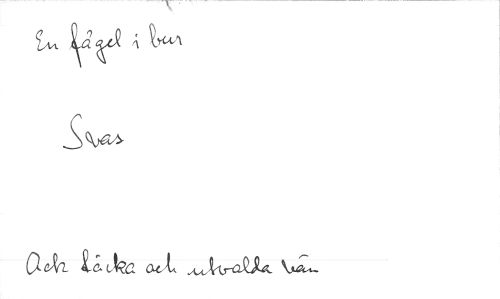 En fågel i bur
Svas
Ack täcka och utvalda vän